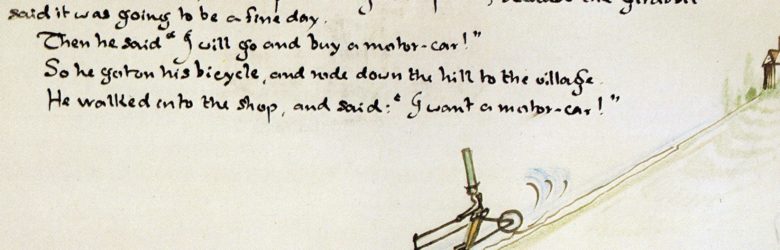 because the Girabbit
said it was going to be a fine day.
Then he said "I will go and buy a motor-car!"
So he got on his bicycle, and rode down the hill to the village.
He walked into the shop, and said: "I want a motor-car!"